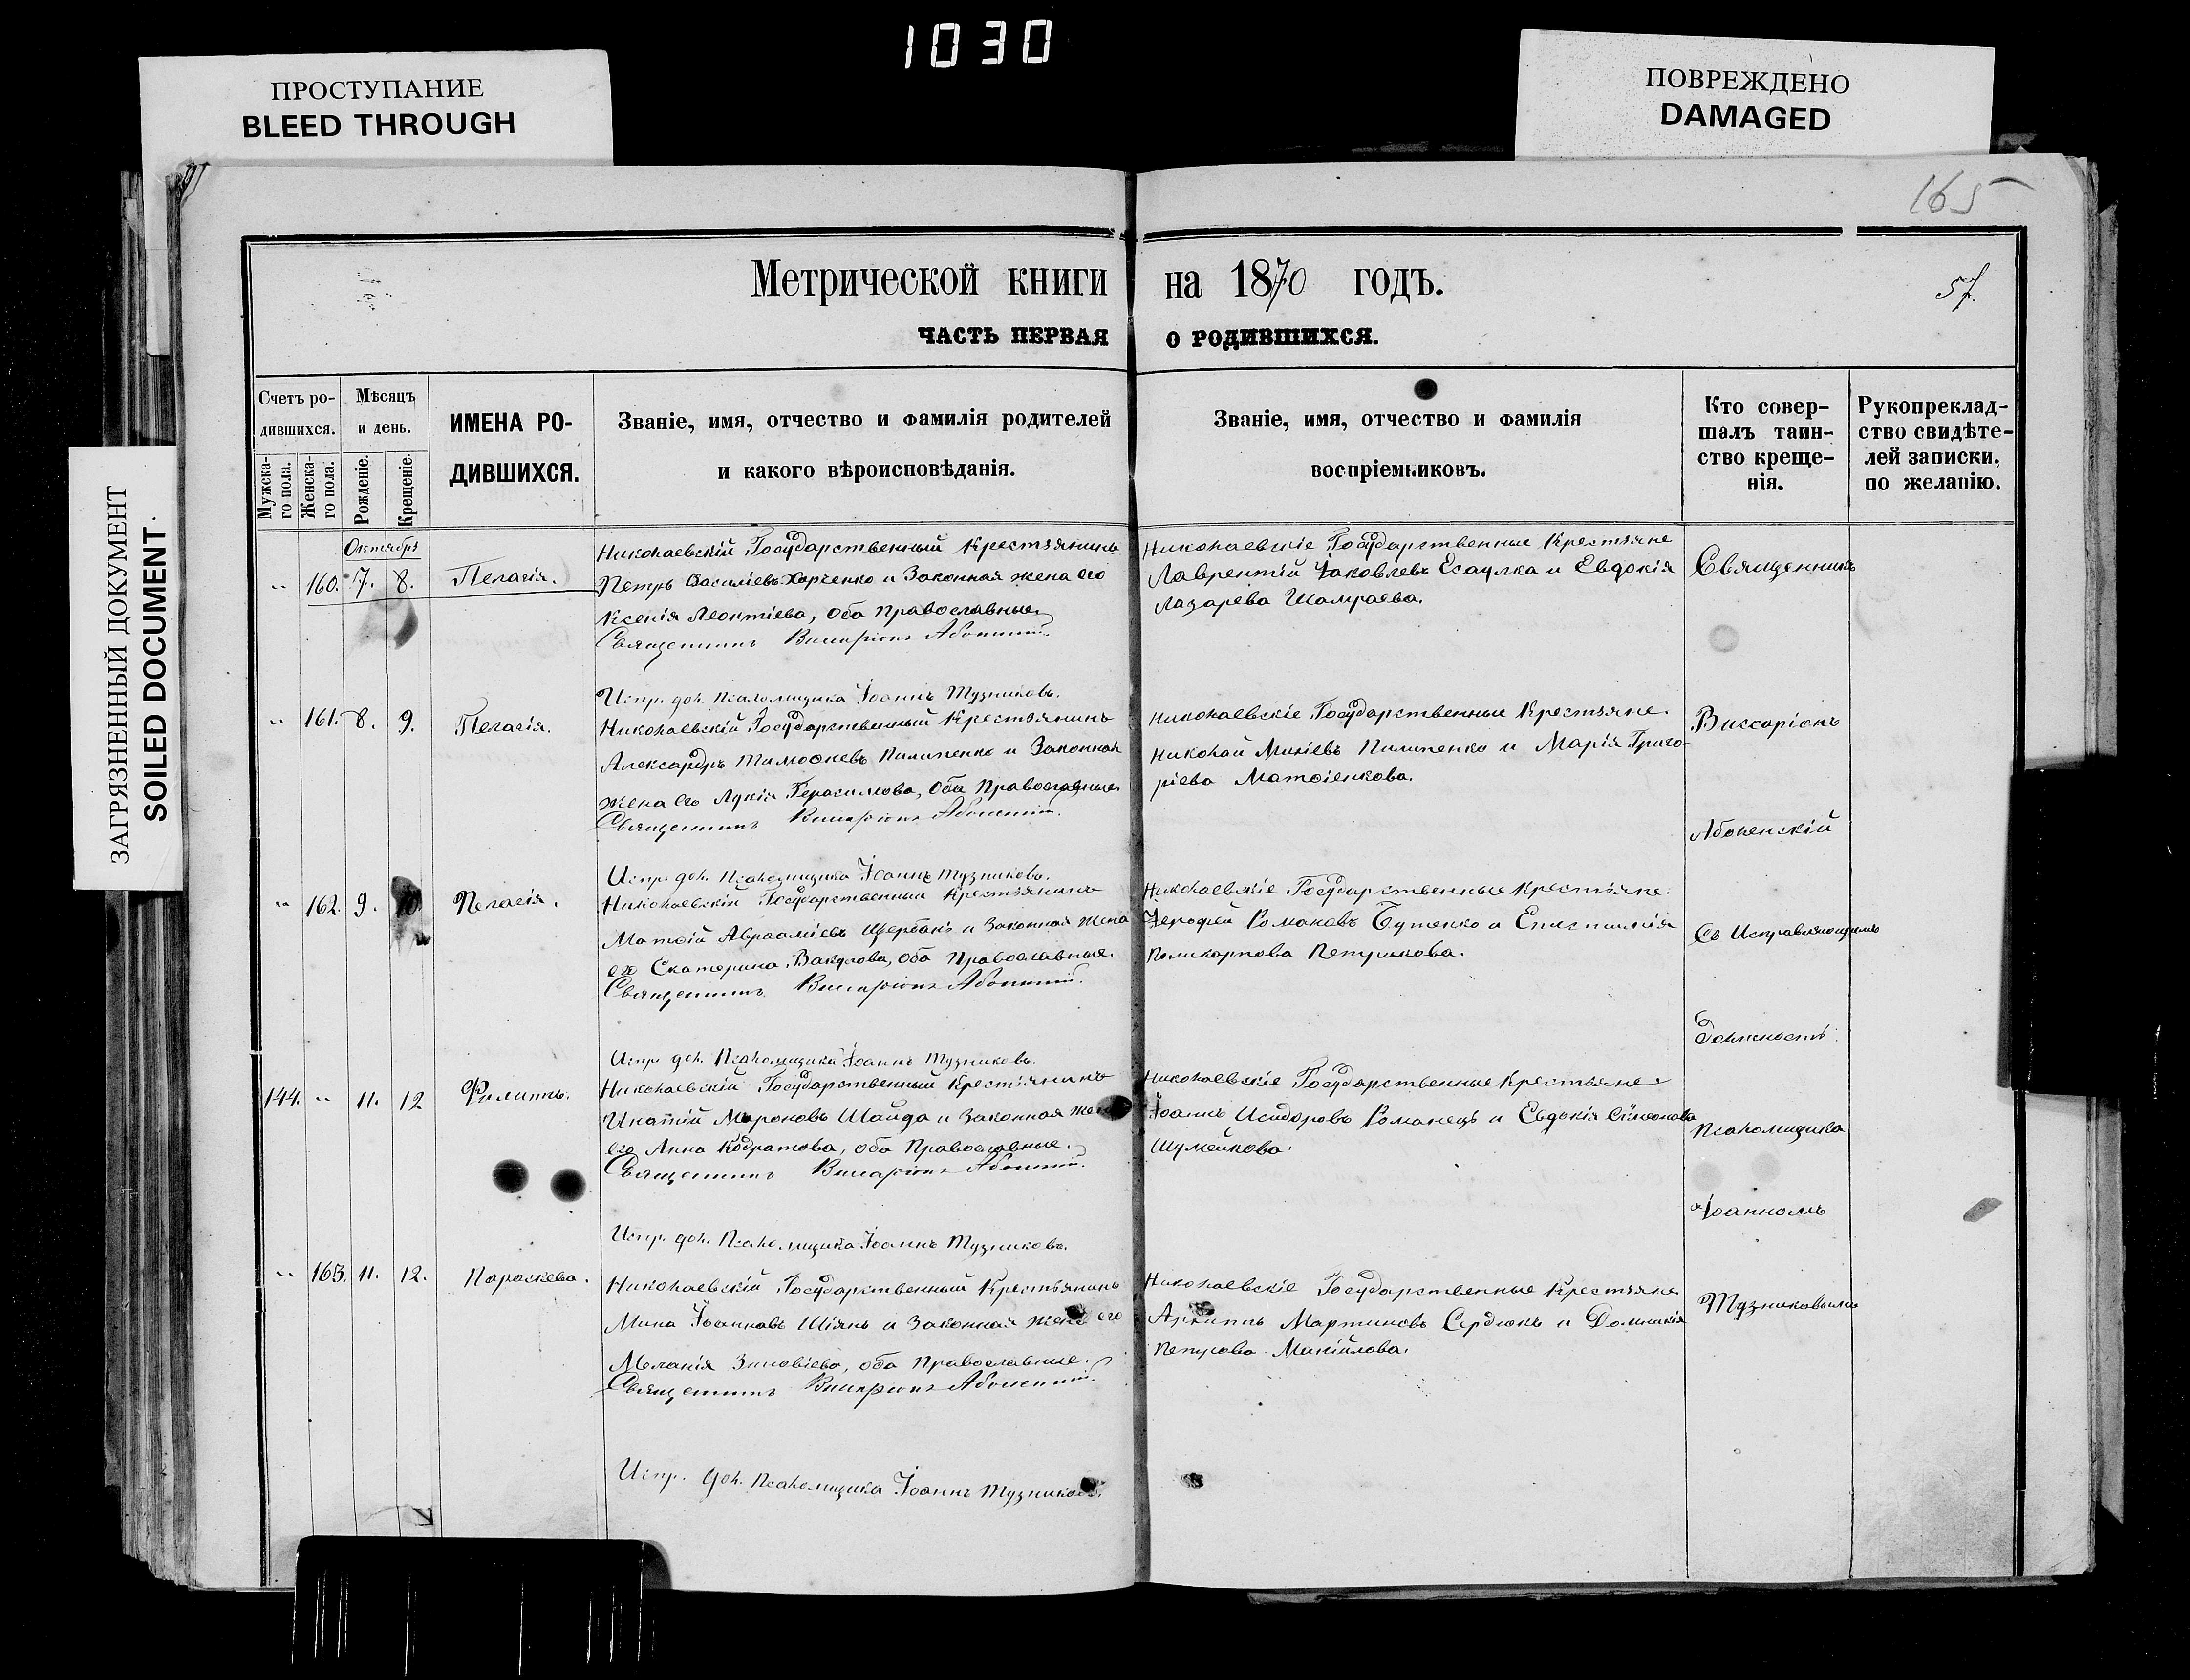 1030
ПРОСТУПАНИЕ
BLEED THROUGH
ПОВРЕЖДЕНО
DAMAGED
ЗАГРЯЗНЕННЫЙ ДОКУМЕНТ
SOILED DOCUMENT
165
Метрической книги на 1870 годъ.
57.
ЧАСТЬ ПЕРВАЯ О РОДИВШИХСЯ.
Счетъ ро-
дившихся.
Мужска-
го пола.
Женска-
го пола.
Мѣсяцъ
и день.
Рожденіе.
Крещеніе.
ИМЕНА РО-
ДИВШИХСЯ.
Званіе, имя, отчество и фамилія родителей
и какого вѣроисповѣданія.
Званіе, имя, отчество и фамилія
воспріемниковъ.
Кто совер-
шалъ таин-
ство креще-
нія.
Рукопреклад-
ство свидѣте-
лей записки,
по желанію.
Октябрь
„ 160. 7. 8. Пелагія.
Николаевскій Государственный Крестьянинъ
Петръ Василіевъ Харченко и Законная жена его
Ксенія Леонтіева, Оба Православные.
Священникъ Виссаріонъ
Испр. дол. Псаломщика Іоаннъ Тузниковъ.
Николаевскіе Государственные Крестьяне
Лаврентій Іаковлевъ Есаулка и Евдокія
Лазарева Шамраева.
„ 161. 8. 9. Пелагія.
Николаевскій Государственный Крестьянинъ
Александръ Тимоѳеевъ Пилипенко и Законная
жена его Лукія Герасимова, Оба Православные.
Священникъ Виссаріонъ
Испр. дол. Псаломщика Іоаннъ Тузниковъ.
Николаевскіе Государственные Крестьяне
Николай Пилипенко и Марія Григо-
ріева Матѳіенкова.
„ 162. 9. 10. Пелагія.
Николаевскій Государственный Крестьянинъ
Матѳій Авраміевъ Щербакъ и Законная жена
его Екатерина Вакулова, оба Православные.
Священникъ Виссаріонъ
Испр. дол. Псаломщика Іоаннъ Тузниковъ.
Николаевскіе Государственные Крестьяне
Іероѳей Романовъ Бутенко и Епистимія
Поликарпова Петрикова.
144. „ 11. 12 Филиппъ.
Николаевскій Государственный Крестьянинъ
Игнатій Мироновъ Шайда и Законная жена
его Анна Кодратова, оба Православные.
Священникъ Виссаріонъ
Испр. дол. Псаломщика Іоаннъ Тузниковъ.
Николаевскіе Государственные Крестьяне
Іоаннъ Исидоровъ Романецъ и Евдокія Симеонова
Шумейкова.
„ 163. 11. 12. Параскева.
Николаевскій Государственный Крестьянинъ
Мина Іоанновъ Шіянъ и Законная жена его
Меланія Зиновіева, оба Православные.
Священникъ Виссаріонъ
Испр. дол. Псаломщика Іоаннъ Тузниковъ.
Николаевскіе Государственные Крестьяне
Архиппъ Мартиновъ Сердюкъ и Домникія
Петрова Манійлова.
Священникъ
Виссаріонъ
Съ Исправляющимъ
Должность
Псаломщика
Іоанномъ
Тузниковымъ